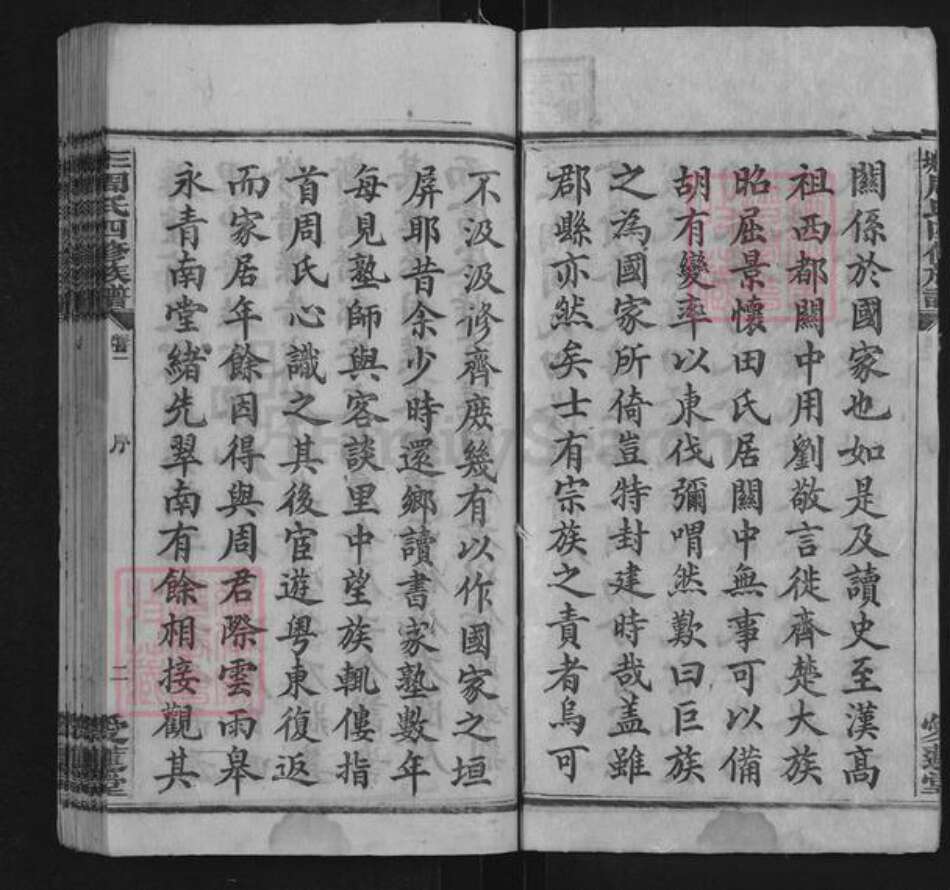 關係於國家也如是及讀史至漢高
祖西都關中用劉敬言徙齊楚大族
昭屈景懷田氏居關中無事可以備
胡有變率以東伐彌喟然歎曰巨族
之為國家所倚豈特封建時哉盖雖
郡縣亦然矣士有宗族之責者烏可
不汲汲修齊庶幾有以作國家之垣
屏耶昔余少時還鄉讀書家塾數年
每見塾師與客談里中望族輒僂指
首周氏心識之其後宦遊粵東復返
而家居年餘因得與周君際雲雨皋
永青南堂緒先翠南有餘相接觀其
周氏四修族譜
序
二
愛蓮堂
FamilySearch